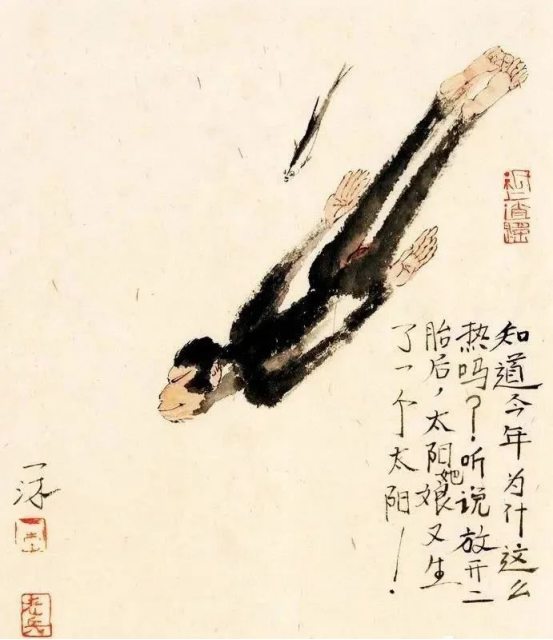 知道今年为什这么
热吗？听说放开二
胎后，太阳她娘又生
了一个太阳！
一沐